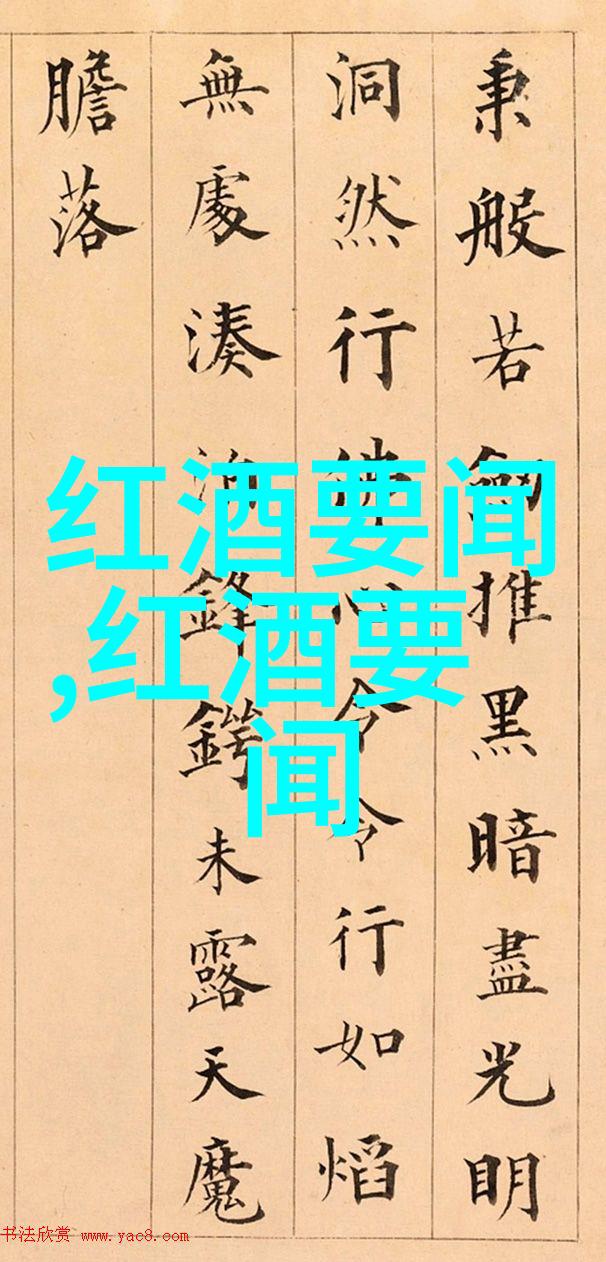 秉般若劒推黑暗盡光明
洞然行佛心令令行如熖
無處湊泊鋒鍔未露天魔
膽落
红酒要闻
,红酒要
闻
书法欣赏 www.yac8.com